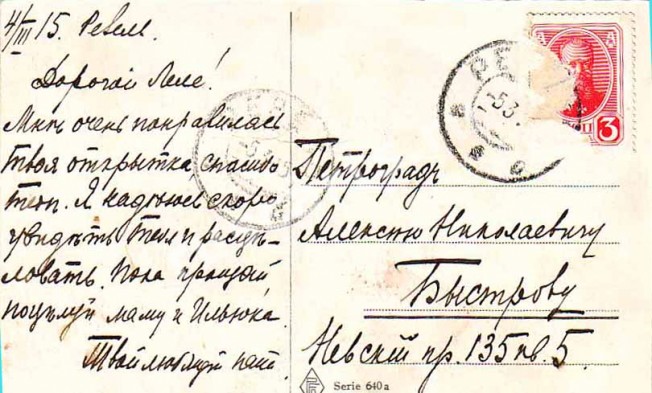 4/III 15. Ревель.
Дорогой Леле!
Мнѣ очень понравилась
твоя открытка спасибо
тебѣ. Я надѣюсь скоро
увидѣть тебя и расцѣ-
ловать. Пока прощай
поцѣлуй маму и Ильюка.
Твой любящій папа.
Петроградъ
Алексѣю Николаевичу
Быстрову
Невскій пр. 135 кв. 5.
РЕ
5 3
3
Serie 640a